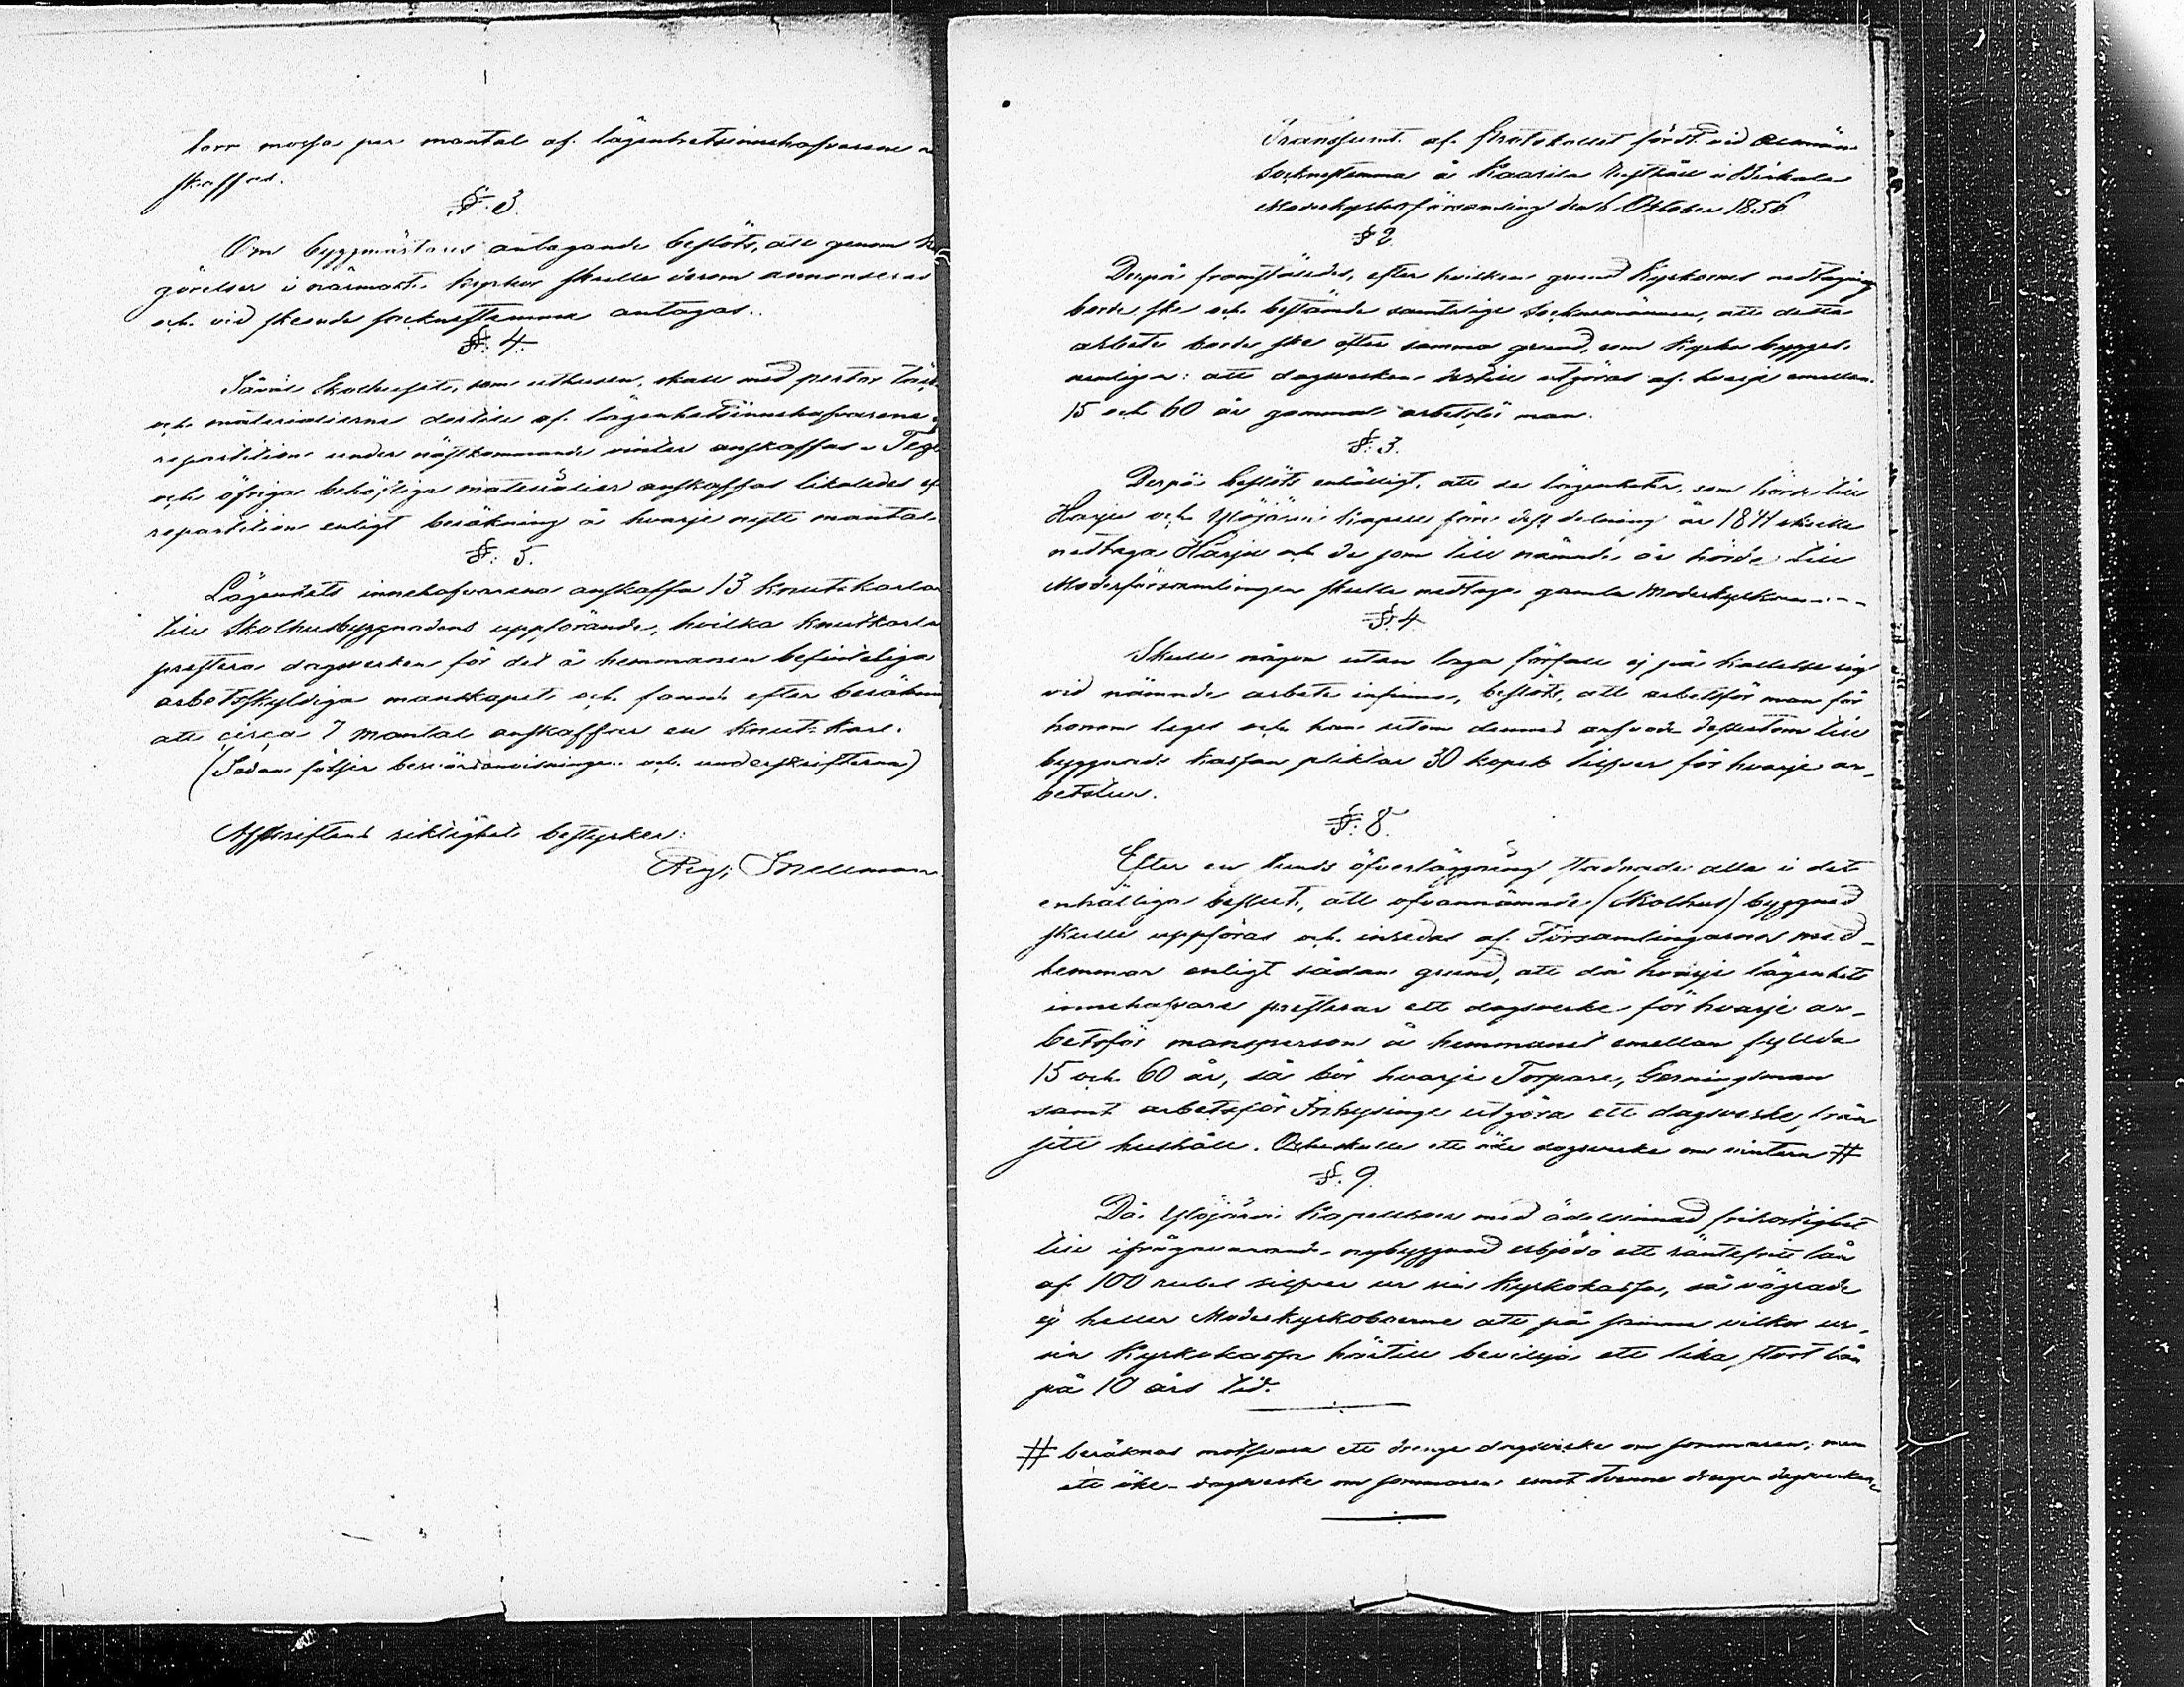 torr mossa per mantal af lägenhetsinnehafvarene
skaffad.
§. 3.
Om byggmästares antagande beslöts, att genom
görelser i närmaste kyrkor skulle derom annonseras
och vid skeende sockenstemma antagas.
§: 4.
Såväl Skolhuset, som uthusen, skall med pertor
och materialierne dertill af lägenhetsinnehafvarene
repartition under nästkommande vinter anskaffas. Tegel
och öfriga behöfliga materialier anskaffas likaledes
repartition enligt beräkning å hvarje nytt mantal.
§: 5.
Lägenhets innehafvarena anskaffa 13 knutkarlar
till Skolhusbyggnadens uppförande, hvilka knutkarlar
prestera dagsverken för det å hemmanen befinteliga
arbetsskyldiga manskapet och fanns efter
att circa 7 mantal anskaffar en knut-karl.
(Sedan följer underskrifterna)
Afskriftens riktighet bestyrker:
Snellman
Transsumt af Protokollet fördt vid Allmän
Sockenstemma å Kaarila Rusthåll i Birkala
Moderkyrkoförsamling den 6 Oktober 1856
§ 2.
Derpå framställdes, efter hvilken grund Kyrkornes nedtagning
borde ske och bestämde samtelige Sockenemännen, att detta
arbete borde ske efter samma grund, som Kyrka bygges
nemligen: att dagsverken dertill utgöras af hvarje emellan
15 och 60 år gammal arbetsför man.
§: 3.
Derpå beslöts enhälligt, att de lägenheter, som hörde till
Harju och Ylöjärvi Kapell före dess delning år 1841 skulle
nedtaga Harju och de som till nämnde år hörde till
Moderförsamlingen skulle nedtaga gamla Moderkyrkan - - -
§. 4.
Skulle någon utan laga förfall ej på kallelse sig
vid nämnde arbete infinna, beslöts, att arbetsför man för
honom leges och han utom dennes dessutom till
byggnads kassan pliktar 30 kopek silfver för hvarje ar-
betskur.
§: 8.
Efter en stunds öfverläggning stadnade alla i det
enhälliga beslut, att ofvannämnde (Skolhus) byggnad
skulle uppföras och inredas af Församlingarnes med-
lemmar enligt sådan grund, att då hvarje lägenhets
innehafvare presterar ett dagsverke för hvarje ar-
betsför mansperson å hemmanet emellan fyllda
15 och 60 år, så bör hvarje Torpare, Gerningsman
samt arbetsför Inhysinge utgöra ett dagsverke från
sitt hushåll. Och skulle ett öke dagsverke om vintern #
§. 9.
Då Ylöjärvi Kapellboer med ädelsinnad frikostighet
till ifrågavarande nybyggnad erbjödo ett räntefritt lån
af 100 rubel silfver ur sin Kyrkokassa, så vägrade
ej heller Moderkyrkoboerne att på samma vilkor ur
sin Kyrkokassa härtill bevilja ett lika stort lån
på 10 års tid.
# beräknas motsvara ett drenge dagsverke om sommaren, men
ett öke-dagsverke om sommaren emot tvenne drenge dagsverken